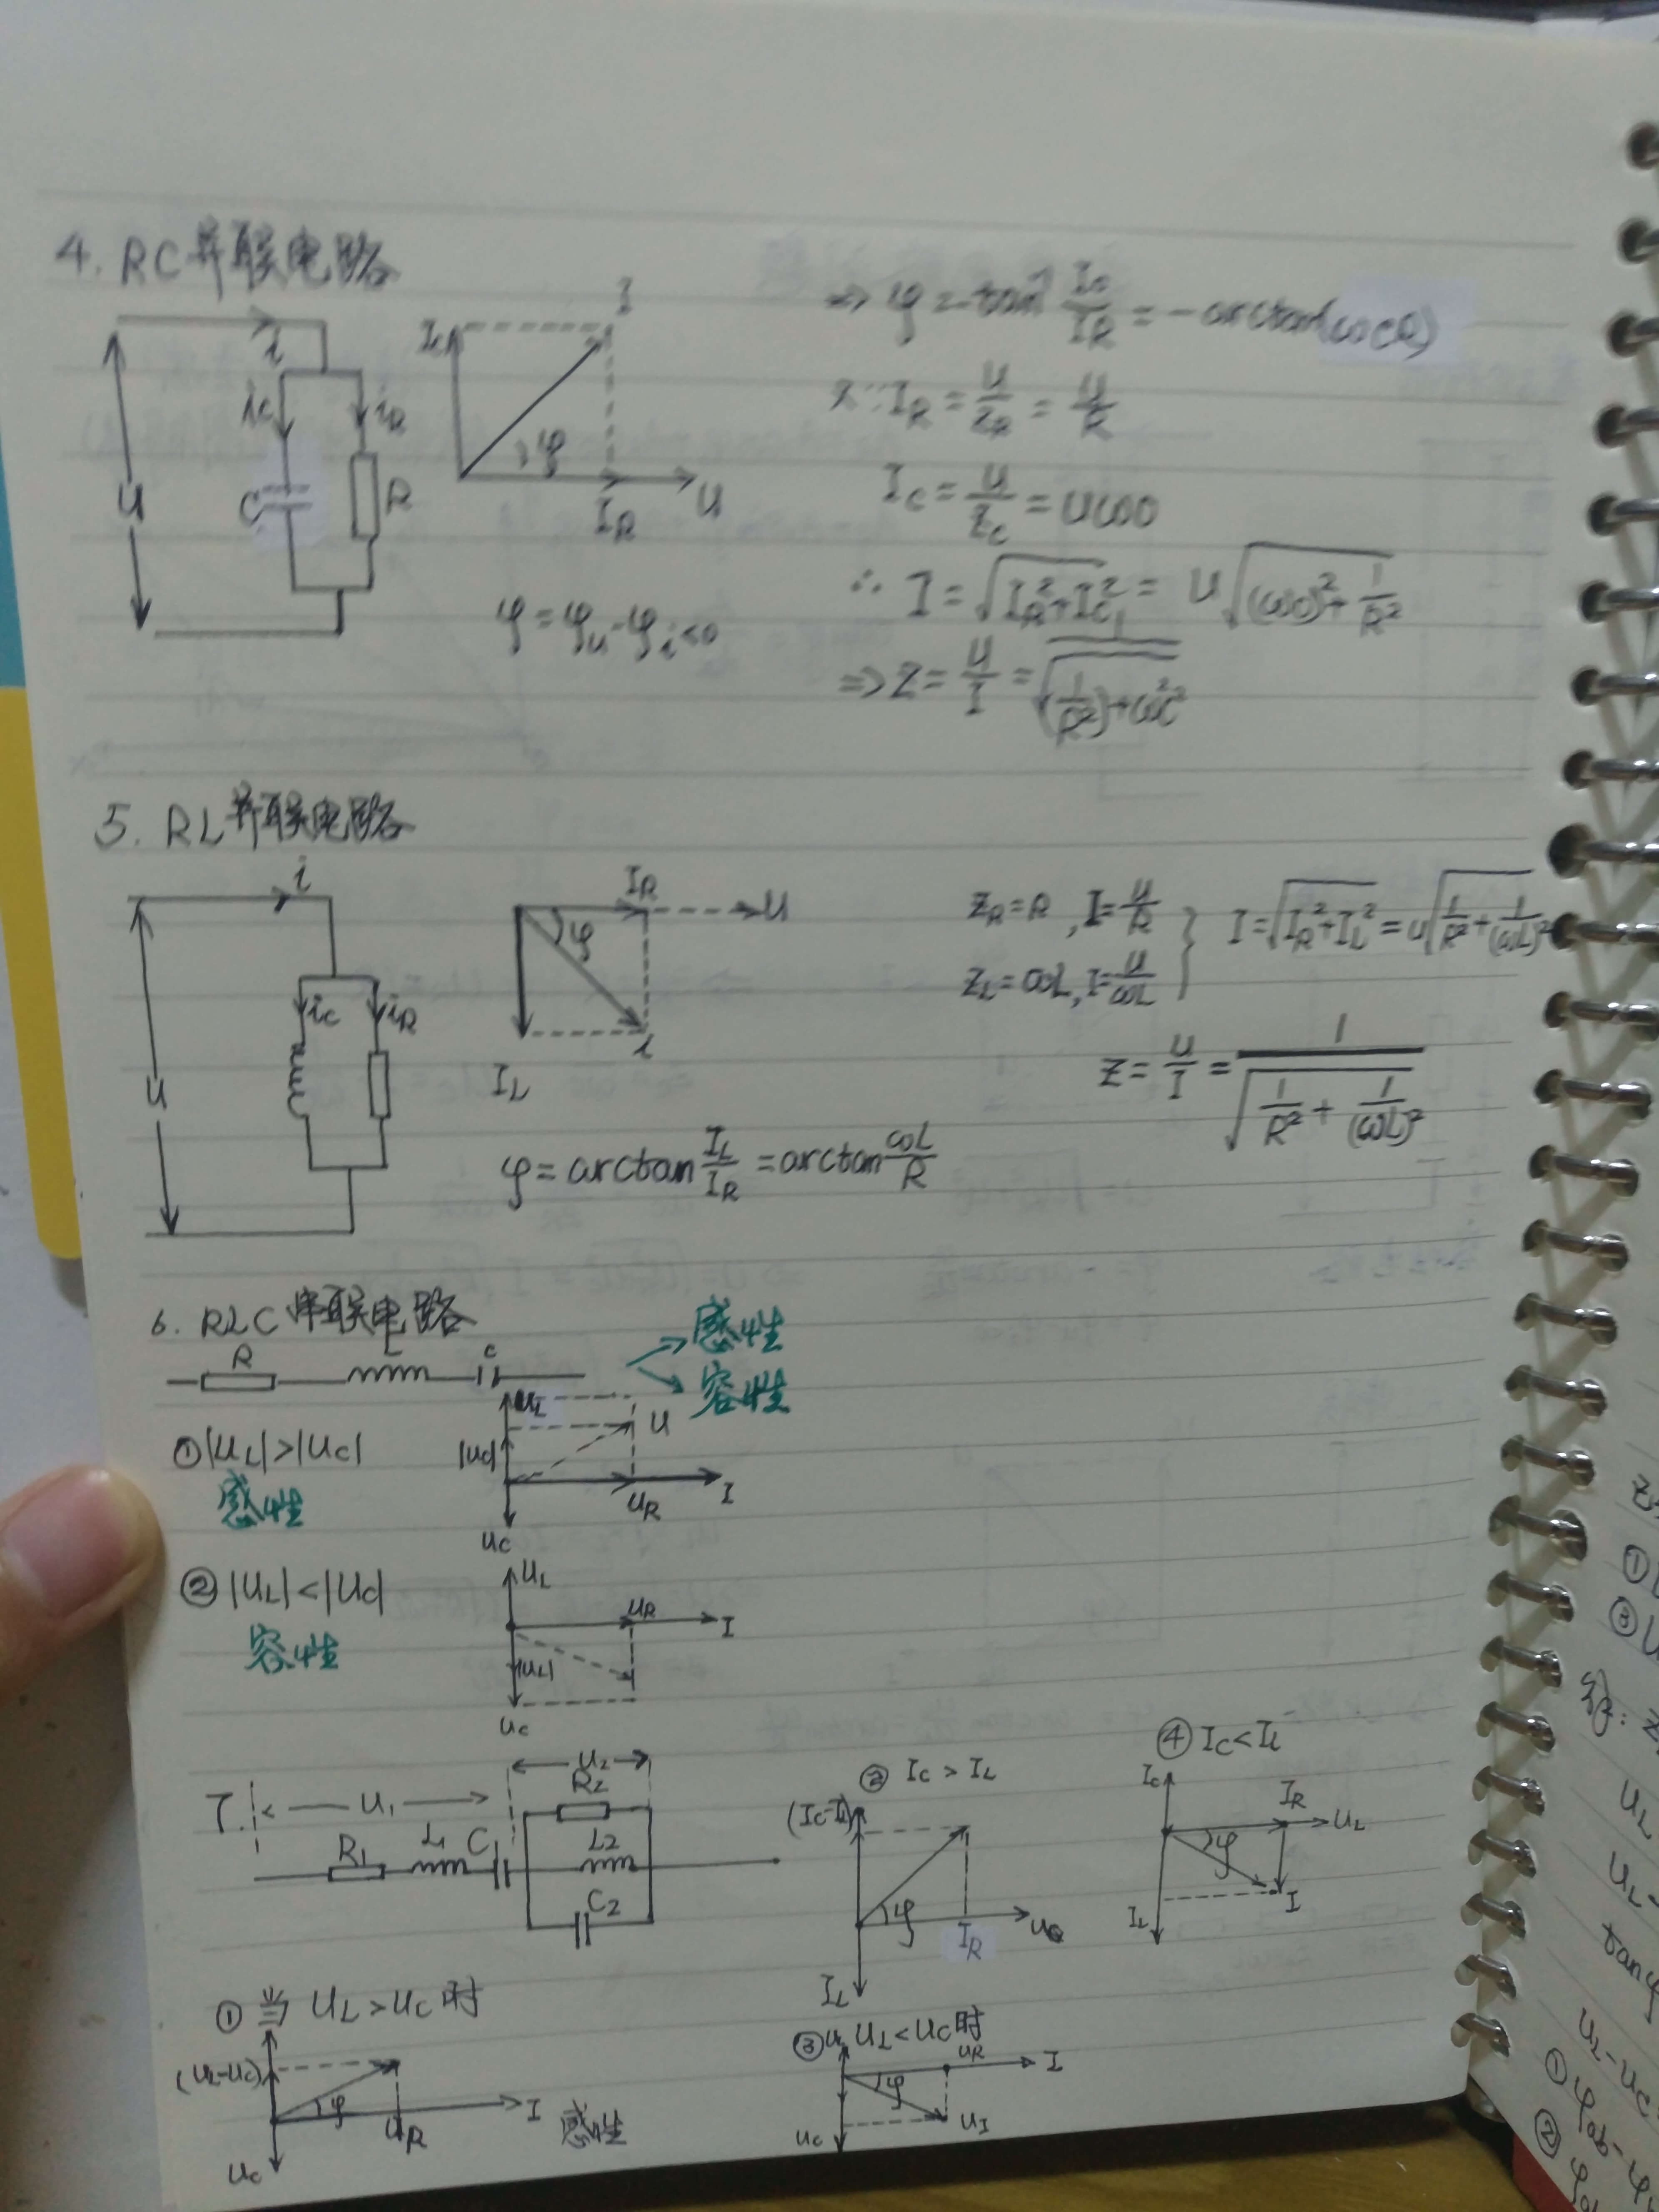 4. RC并联电路
i
ic
iR
U
C
R
Ic
I
φ
IR
U
φ=φu-φi<0
⇒ φ=-tan⁻¹ Ic/IR = -arctan(ωCR)
又∵IR = U/ZR = U/R
Ic = U/Zc = UωC
∴ I = √(IR²+Ic²) = U√((ωC)²+1/R²)
⇒ Z = U/I = 1/√((1/R²)+ω²C²)
5. RL并联电路
i
ic
iR
U
IR
U
φ
i
IL
ZR=R, I=U/R
ZL=ωL, I=U/ωL
} I=√(IR²+IL²) = U√(1/R²+1/(ωL)²)
Z = U/I = 1/√(1/R²+1/(ωL)²)
φ = arctan IL/IR = arctan ωL/R
6. RLC串联电路
感性
容性
R
L
C
①|UL|>|Uc|
感性
UL
|Uc|
U
UR
I
Uc
②|UL|<|Uc|
容性
UL
UR
I
|UL|
Uc
7.
U1
U2
R1
L1
C1
R2
L2
C2
② Ic > IL
(Ic-IL)
φ
IR
IL
④ Ic < IL
Ic
IR
UL
φ
I
IL
① 当 UL>Uc 时
(UL-Uc)
φ
UR
I
Uc
感性
③ UL<Uc时
UR
I
φ
UI
Uc
①
③
解:
UL
UL-
tanφ
UL-Uc
①φab-φ
②φ